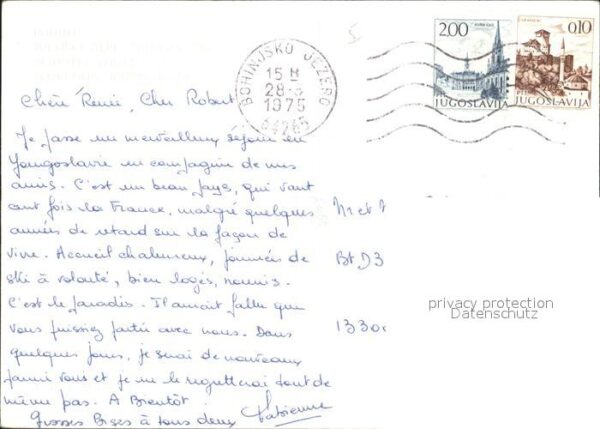 BOHINJSKO JEZERO
15 H
28-3
1975
64265
2.00
JUGOSLAVIJA
0.10
JUGOSLAVIJA
Chère Renée, Cher Robert
Je passe un merveilleux séjour en
Yougoslavie en compagnie de mes
amis. C'est un beau pays, qui vaut
cent fois la France, malgré quelques
années de retard sur la façon de
vivre. Accueil chaleureux, journées de
ski à volonté, bien logés, nourris.
C'est le paradis. Il aurait fallu que
vous puissiez partir avec nous. Dans
quelques jours, je serai de nouveaux
parmi vous et je ne le regretterai tout de
même pas. A Bientôt.
Grosses Bises à tous deux Fabienne
Mr et
Bt D3
1330
privacy protection
Datenschutz